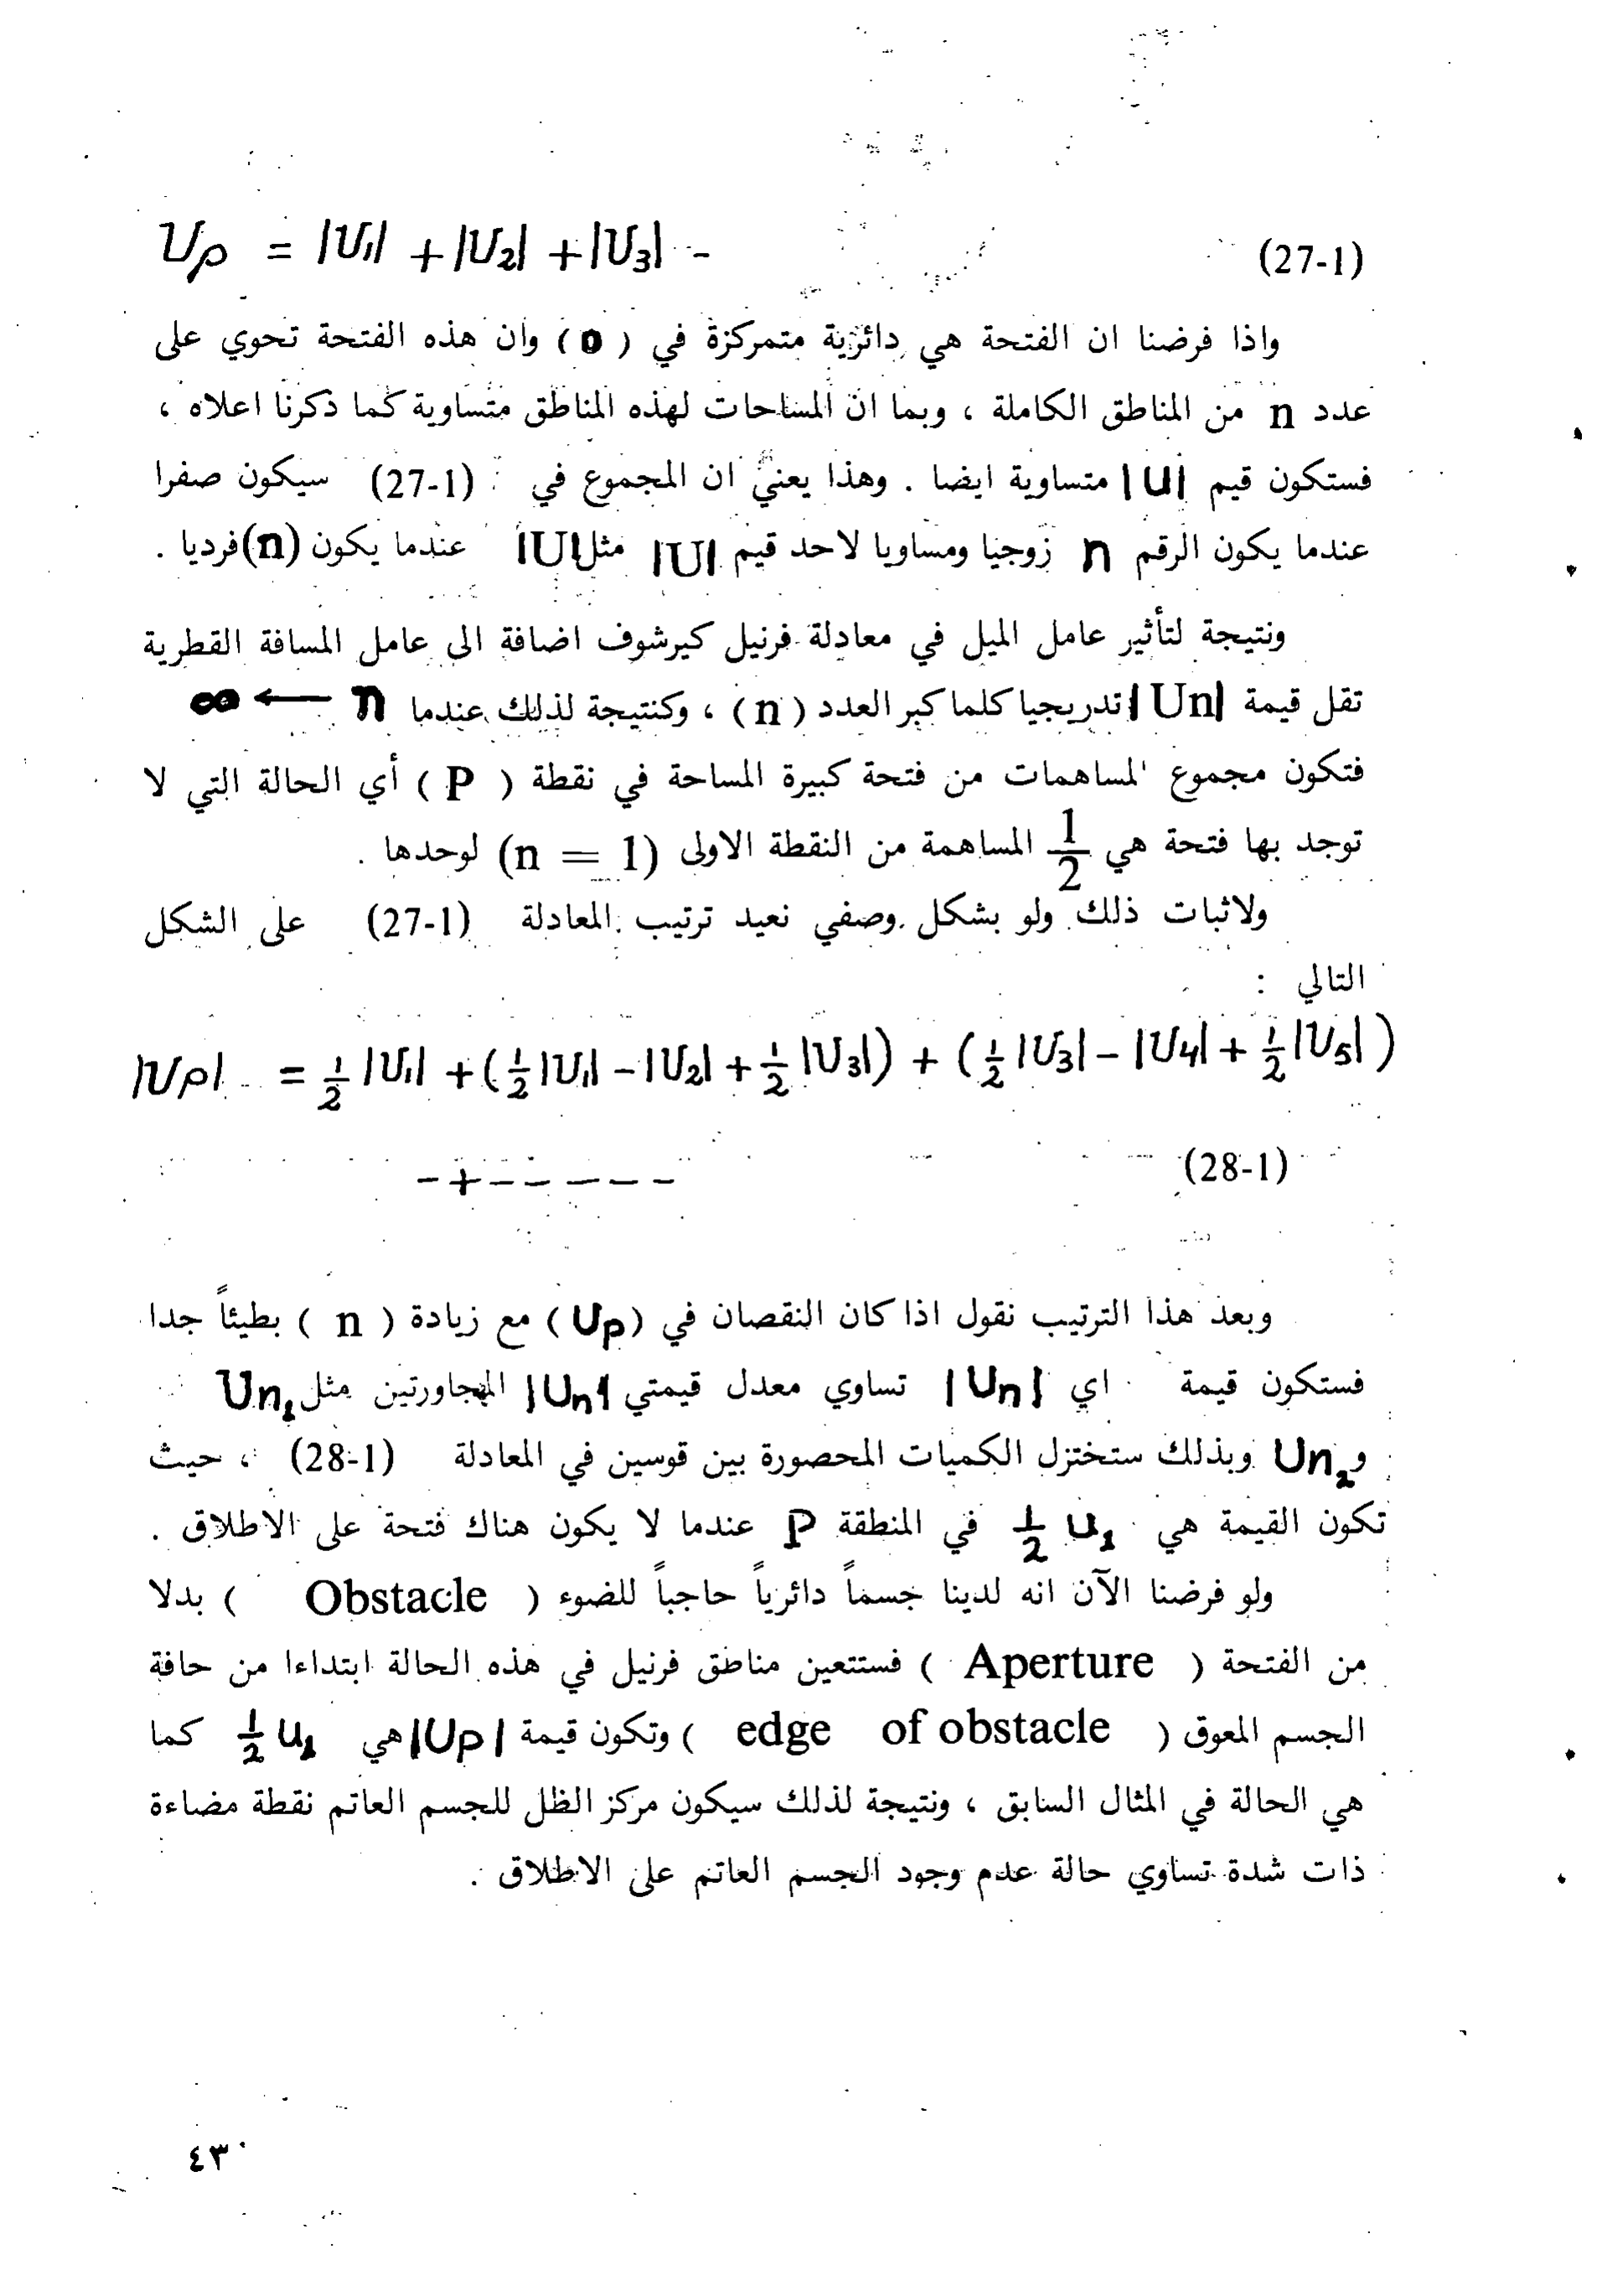 Up = |U1| + |U2| + |U3| - (27-1)
واذا فرضنا ان الفتحة هي دائرية متمركزة في ( o ) وان هذه الفتحة تحوي على
عدد n من المناطق الكاملة ، وبما ان المساحات لهذه المناطق متساوية كما ذكرنا اعلاه ،
فستكون قيم |U| متساوية ايضا . وهذا يعني ان المجموع في (27-1) سيكون صفرا
عندما يكون الرقم n زوجيا ومساويا لاحد قيم |U| مثل |U| عندما يكون (n) فرديا .
ونتيجة لتأثير عامل الميل في معادلة فرنيل كيرشوف اضافة الى عامل المسافة القطرية
تقل قيمة |Un| تدريجيا كلما كبر العدد ( n ) ، وكنتيجة لذلك عندما n ⟶ ∞
فتكون مجموع المساهمات من فتحة كبيرة المساحة في نقطة ( P ) أي الحالة التي لا
توجد بها فتحة هي 1/2 المساهمة من النقطة الاولى (n = 1) لوحدها .
ولاثبات ذلك ولو بشكل وصفي نعيد ترتيب المعادلة (27-1) على الشكل
التالي :
|Up| = 1/2 |U1| + (1/2 |U1| - |U2| + 1/2 |U3|) + (1/2 |U3| - |U4| + 1/2 |U5|)
- + - - - - - (28-1)
وبعد هذا الترتيب نقول اذا كان النقصان في (Up) مع زيادة ( n ) بطيئاً جدا
فستكون قيمة اي |Un| تساوي معدل قيمتي |Un| المجاورتين مثل Un1
و Un2 وبذلك ستختزل الكميات المحصورة بين قوسين في المعادلة (28-1) ، حيث
تكون القيمة هي 1/2 U1 في المنطقة P عندما لا يكون هناك فتحة على الاطلاق .
ولو فرضنا الآن انه لدينا جسماً دائرياً حاجباً للضوء ( Obstacle ) بدلا
من الفتحة ( Aperture ) فستتعين مناطق فرنيل في هذه الحالة ابتداءا من حافة
الجسم المعوق ( edge of obstacle ) وتكون قيمة |Up| هي 1/2 U1 كما
هي الحالة في المثال السابق ، ونتيجة لذلك سيكون مركز الظل للجسم العاتم نقطة مضاءة
ذات شدة تساوي حالة عدم وجود الجسم العاتم على الاطلاق .
٤٣